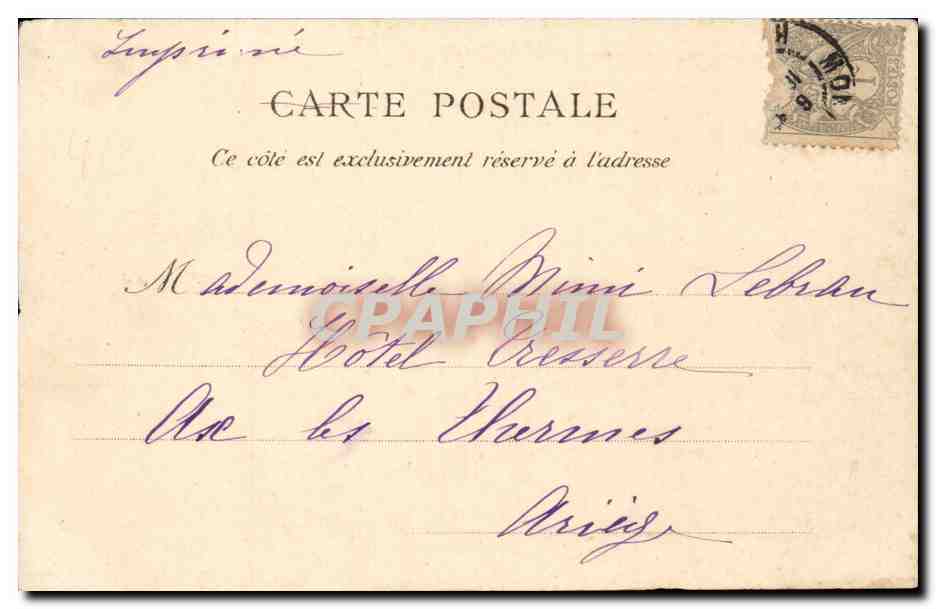 Imprimé
CARTE POSTALE
Ce côté est exclusivement réservé à l'adresse
Mademoiselle Mimi Lebrau
Hôtel Tresserre
Ax les Thermes
Ariège
CPAPHIL
1
POSTES
MON